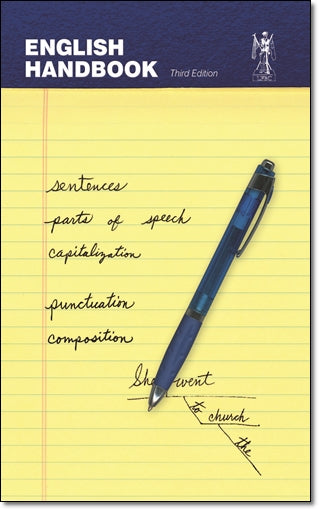 ENGLISH
HANDBOOK Third Edition
sentences
parts of speech
capitalization
punctuation
composition
She went
to church
the